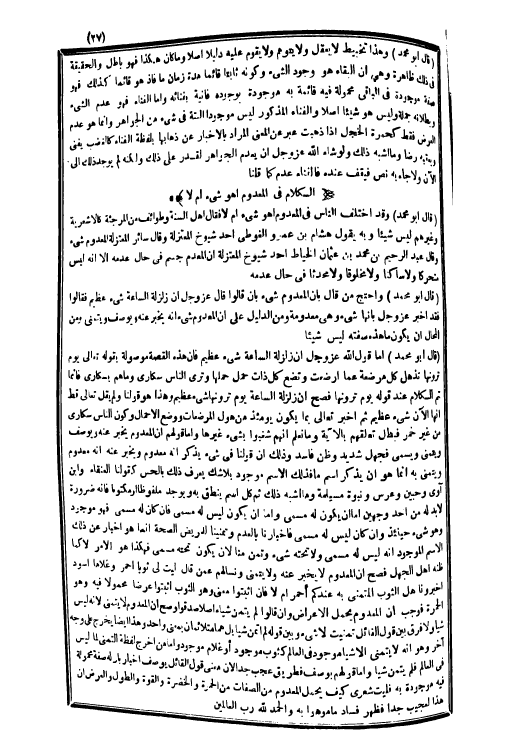 (٢٧)
(قال ابو محمد) وهذا تخبيط لا يعقل ولا يتوهم ولا يقوم عليه دليل اصلا وما كان هكذا فهو باطل والحقيقة
فى ذلك ظاهرة وهى ان البقاء هو وجود الشىء وكونه ثابتا قائما مدة زمان ما فاذ هو قائما كذلك فهو
صفة موجودة فى الباقى محمولة فيه قائمة به موجودة بوجوده فانية بفنائه واما الفناء فهو عدم الشىء
وبطلانه جملة وليس هو شيئا اصلا والفناء المذكور ليس موجودا البتة فى شىء من الجواهر وانما هو عدم
العرض فقط كحمرة الخجل اذا ذهبت عبر عن المعنى المراد بالاخبار عن ذهابها بلفظة الفناء كالغضب يفنى
ويعقبه رضا وما اشبه ذلك ولو شاء الله عز وجل ان يعدم الجواهر لقدر على ذلك ولكنه لم يوجد ذلك الى
الآن ولا جاء به نص فيقف عنده فالفناء عدم كما قلنا
الكلام فى المعدوم اهو شىء ام لا
(قال ابو محمد) وقد اختلف الناس فى المعدوم اهو شىء ام لا فقال اهل السنة وطوائف من المرجئة كالاشعرية
وغيرهم ليس شيئا وبه يقول هشام بن عمرو الفوطى احد شيوخ المعتزلة وقال سائر المعتزلة المعدوم شىء
وقال عبد الرحيم بن محمد بن عثمان الخياط احد شيوخ المعتزلة ان المعدوم جسم فى حال عدمه الا انه ليس
متحركا ولا ساكنا ولا مخلوقا ولا محدثا فى حال عدمه
(قال ابو محمد) واحتج من قال بان المعدوم شىء بان قالوا قال عز وجل ان زلزلة الساعة شىء عظيم فقالوا
فقد اخبر عز وجل بانها شىء وهى معدومة ومن الدليل على ان المعدوم شىء انه يخبر عنه ويوصف ويتمنى ومن
المحال ان يكون ما هذه صفته ليس شيئا
(قال ابو محمد) اما قول الله عز وجل ان زلزلة الساعة شىء عظيم فان هذه القصة موصولة بقوله تعالى يوم
ترونها تذهل كل مرضعة عما ارضعت وتضع كل ذات حمل حملها وترى الناس سكارى وما هم بسكارى فانما
تم الكلام عند قوله يوم ترونها فصح ان زلزلة الساعة يوم ترونها شىء عظيم وهذا هو قولنا ولم يقل تعالى قط
انها الآن شىء عظيم ثم اخبر تعالى بما يكون يومئذ من هول المرضعات ووضع الاحمال وكون الناس سكارى
من غير خمر فبطل تعلقهم بالآية وما نعلم انهم شغبوا بشىء غيرها واما قولهم ان المعدوم يخبر عنه ويوصف
ويتمنى ويسمى فجهل شديد وظن فاسد وذلك ان قولنا فى شىء يذكر انه معدوم ويخبر عنه انه معدوم
ويتمنى به انما هو ان يذكر اسم ما فذلك الاسم موجود بلا شك يعرف ذلك بالحس كقولنا العنقاء وابن
آوى وحبين وعرس و نبوة مسيلمة وما اشبه ذلك ثم كل اسم ينطق به ويوجد ملفوظا او مكتوبا فانه ضرورة
لابد له من احد وجهين اما ان يكون له مسمى واما ان يكون ليس له مسمى فان كان له مسمى فهو موجود
وهو شىء حينئذ وان كان ليس له مسمى فاخبارنا بالعدم وتمنينا للمريض الصحة انما هو اخبار عن ذلك
الاسم الموجود انه ليس له مسمى ولا تحته شىء وتمن منا لان يكون تحته مسمى فهكذا هو الامر لا كما
ظنه اهل الجهل فصح ان المعدوم لا يخبر عنه ولا يتمنى ونسالهم عمن قال ليت لى ثوبا احمر وغلاما اسود
اخبرونا هل الثوب المتمنى به عندكم أحمر ام لا فان اثبتوا معنى وهو الثوب اثبتوا عرضا محمولا فيه وهو
الحمرة فوجب ان المعدوم يحمل الاعراض وان قالوا لم يتمن شيئا اصلا صدقوا وصح ان المعدوم لا يتمنى لانه ليس
شيئا ولا فرق بين قول القائل تمنيت لا شى وبين قوله لم اتمن شيئا بل هما متلائمان بمعنى واحد وهذا ايضا يخرج على وجه
آخر وهو انه لا يتمنى الا شيئا موجودا فى العالم كثوب موجود أو غلام موجود واما من اخرج لفظة التمنى لما ليس
فى العالم فلم يتمن شيئا واما قولهم يوصف فطريق عجب جدا لان معنى قول القائل يوصف اخبار بان له صفة محمولة
فيه موجودة به فليت شعرى كيف يحمل المعدوم من الصفات من الحمرة والخضرة والقوة والطول والعرض ان
هذا لعجيب جدا فظهر فساد ما موهوا به والحمد لله رب العالمين